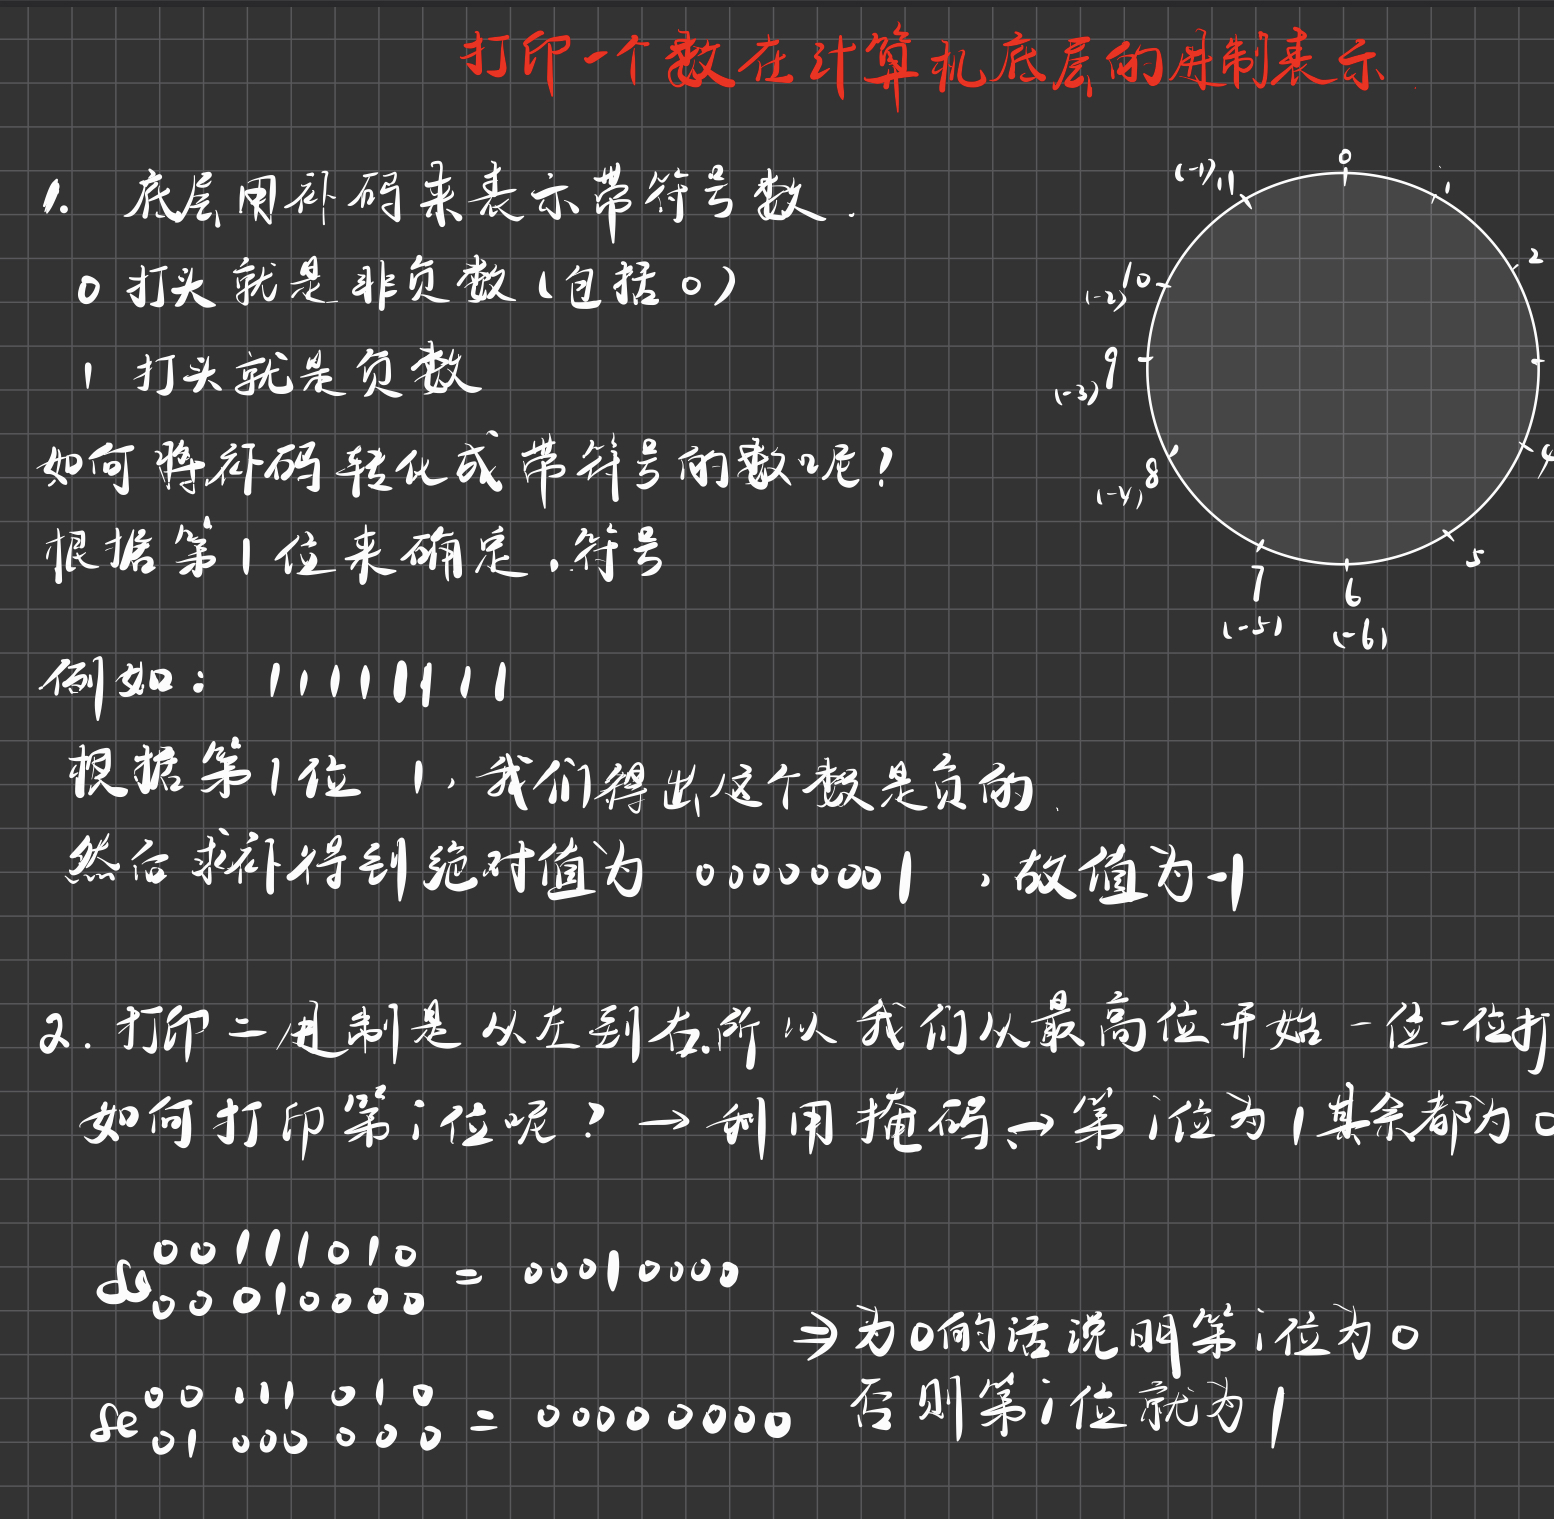 打印一个数在计算机底层的进制表示
1. 底层用补码来表示带符号数.
0 打头就是非负数(包括0)
1 打头就是负数
如何将补码转化成带符号的数呢?
根据第1位来确定,符号
0
1
2
4
5
6
(-6)
7
(-5)
8
(-4)
9
(-3)
10
(-2)
11
(-1)
例如: 11111111
根据第1位 1, 我们得出这个数是负的.
然后求补得到绝对值为 00000001 ,故值为-1
2. 打印二进制是从左到右.所以我们从最高位开始一位一位打
如何打印第i位呢? → 利用掩码 → 第i位为1其余都为0
00111010
& 00010000 = 00010000
00111010
& 01000000 = 00000000
⇒ 为0的话说明第i位为0
否则第i位就为1